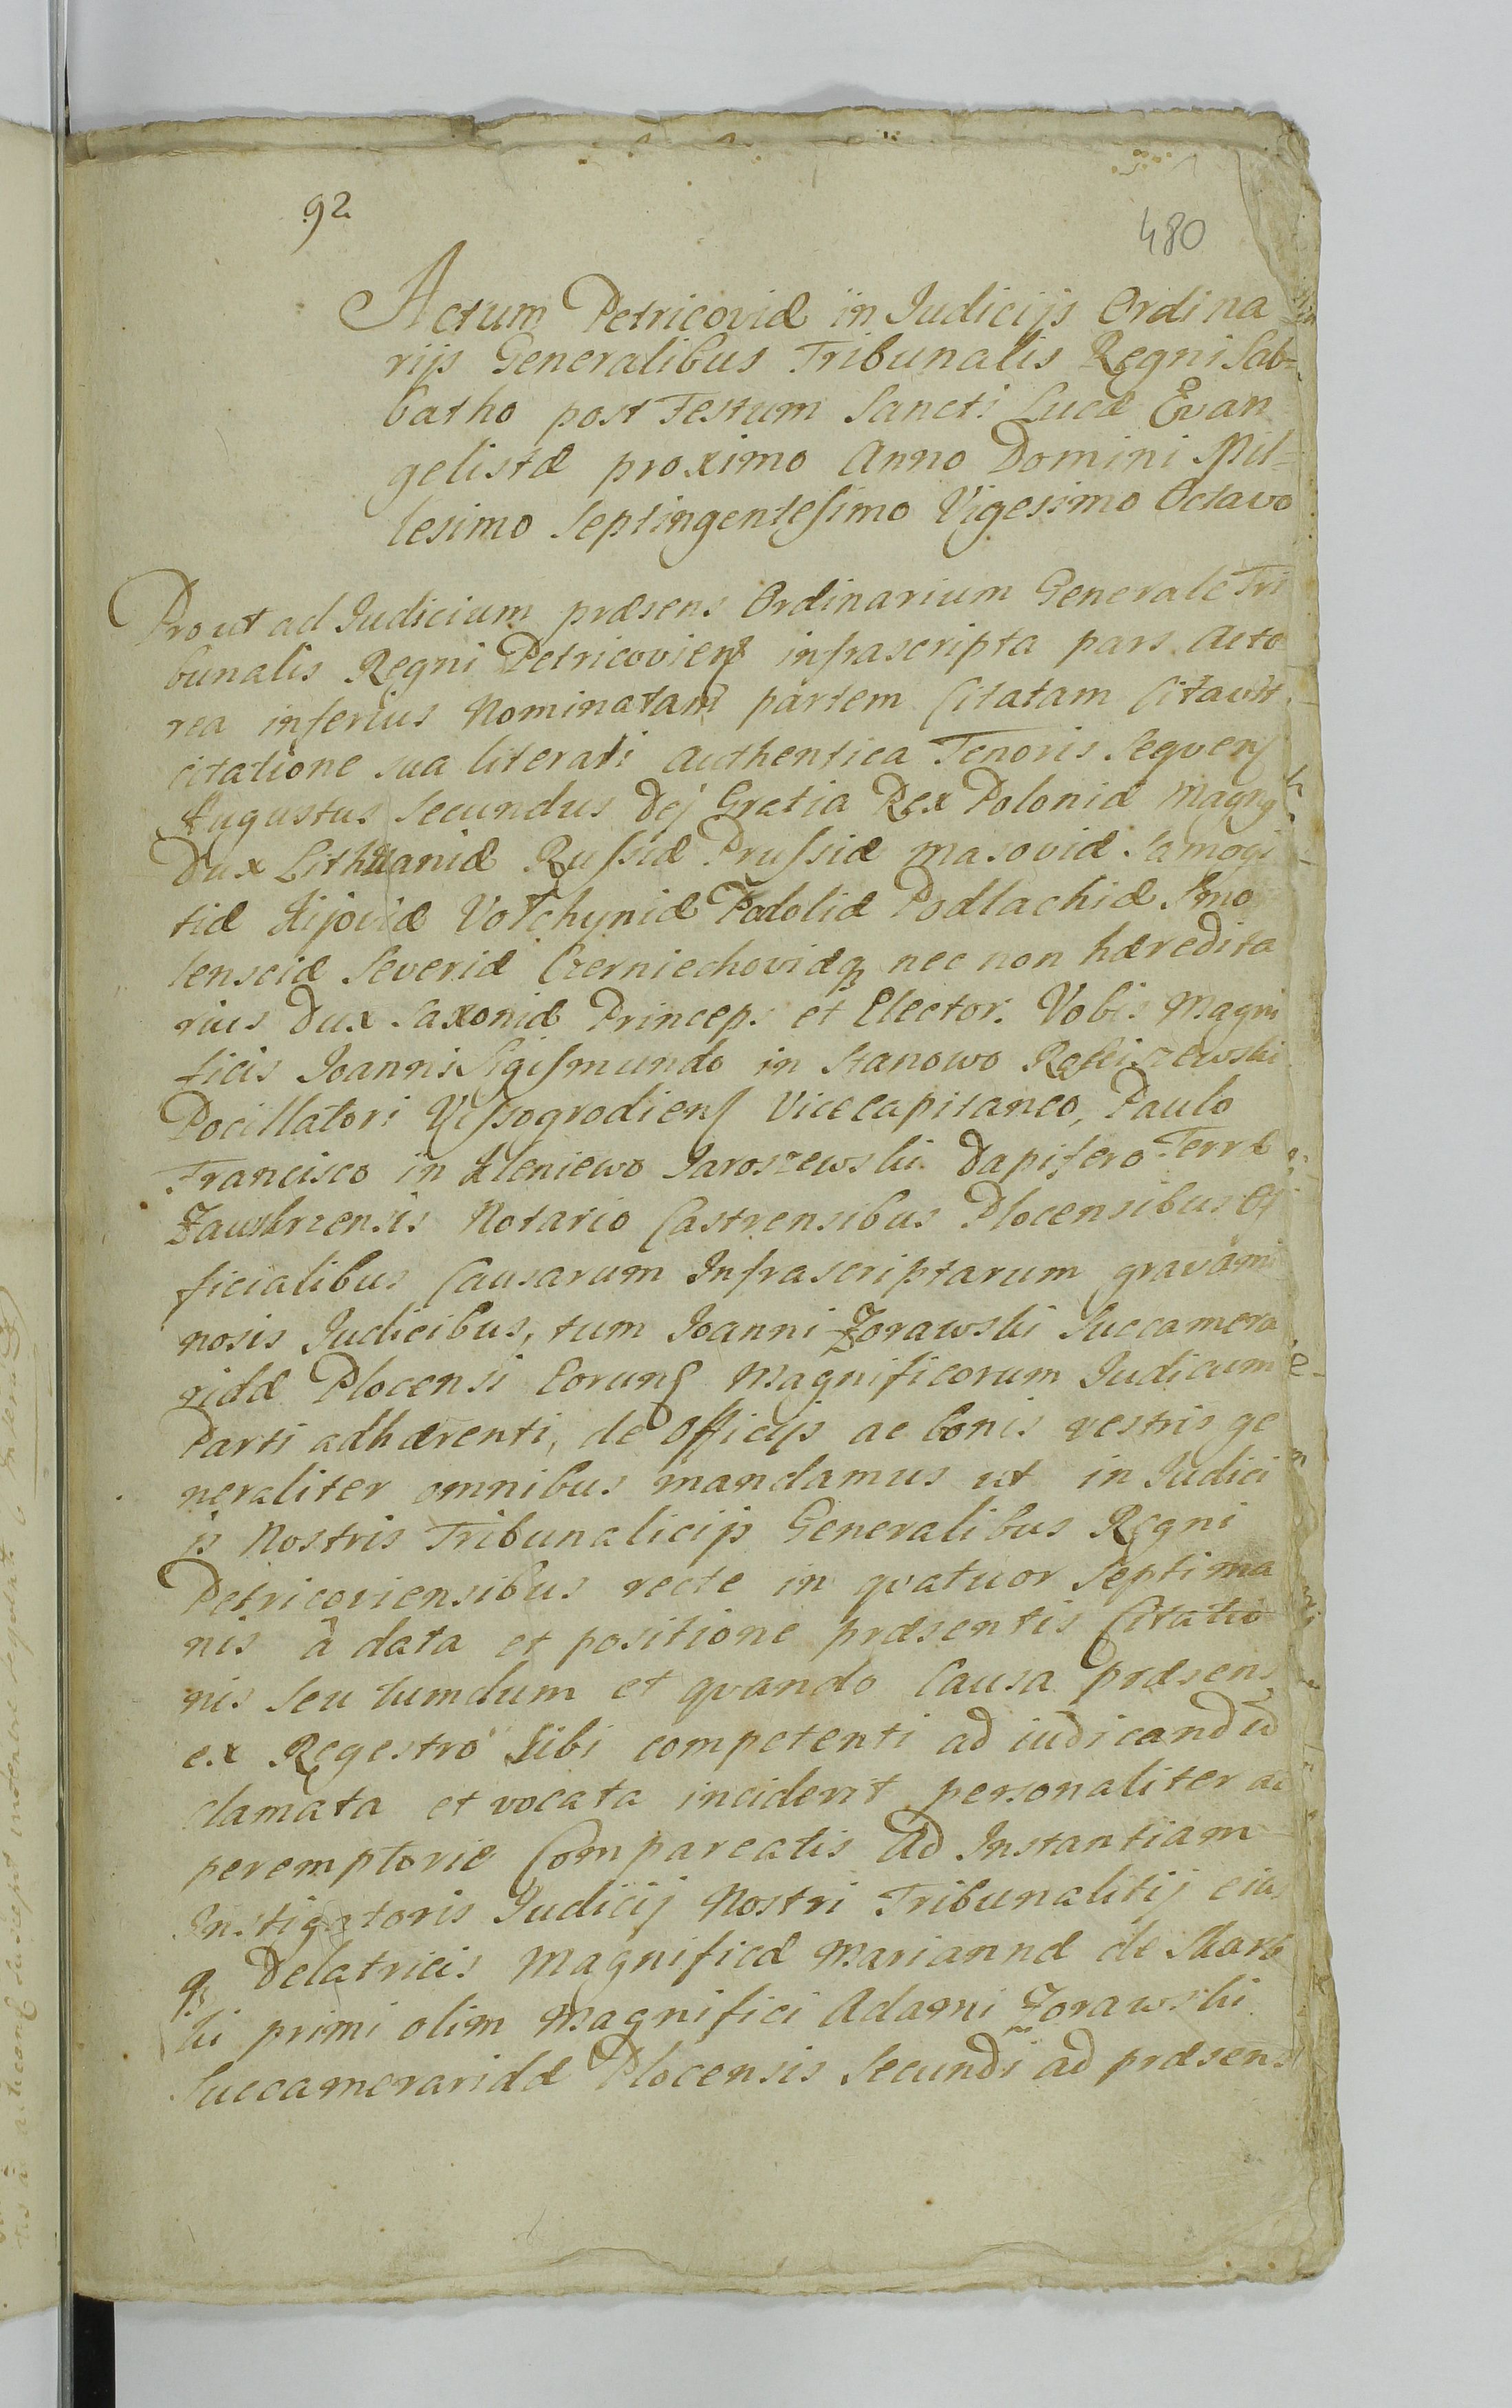 92
480
Actum Petricoviæ in Iudicijs Ordina
rijs Generalibus Tribunalis Regni Sab=
batho post Festum Sancti Lucæ Evan
gelistæ proximo Anno Domini Mil=
lesimo Septingentesimo Vigesimo Octavo
Prout ad Iudicium præsens Ordinarium Generale Tri
bunalis Regni Petricoviens infrascripta pars Acto
rea inferius Nominatam partem Citatam Citavit
citatione sua literali Authentica Tenoris Seqvens
Augustus Secundus Dej Gratia Rex Poloniæ Magng
Dux Lithuaniæ Russiæ Prussiæ Masoviæ Samogi
tiæ Kijoviæ Volchyniæ Podoliæ Podlachiæ Smo
lensciæ Severiæ Czerniechoviæq nec non hæredita
rius Dux Saxoniæ Princeps et Elector. Vobis Magni
ficis Ioanni Sigismundo in Stanowo
Pocillatori Vissogrodiens Vicecapitaneo, Paulo
Francisco in Kleniewo Iaroszewski Dapifero Terræ
Zawskrzensis Notario Castrensibus Plocensibus Of
ficialibus Causarum Infrascriptarum gravami
nosis Iudicibus, tum Ioanni Zorawski Succamera
ridæ Plocensi Eorunq Magnificorum Iudicum
Parti adhærenti, de Officijs ac bonis vestris ge
neraliter omnibus mandamus ut in Iudici
is Nostris Tribunalicijs Generalibus Regni
Petricoviensibus recte in qvatuor Septima
nis à data et positione præsentis Citatio
nis seu tumdum et qvando Causa præsens
ex Regestro Sibi competenti ad iudicandū
clamata et vocata inciderit personaliter ac
peremptorie Compareatis Ad Instantiam
Instigatoris Iudicij Nostri Tribunalitij eius
q Delatricis Magnificæ Mariannæ de Skarb
ki primi olim Magnifici Adami Zorawski
Succameraridæ Plocensis Secundi ad præsens